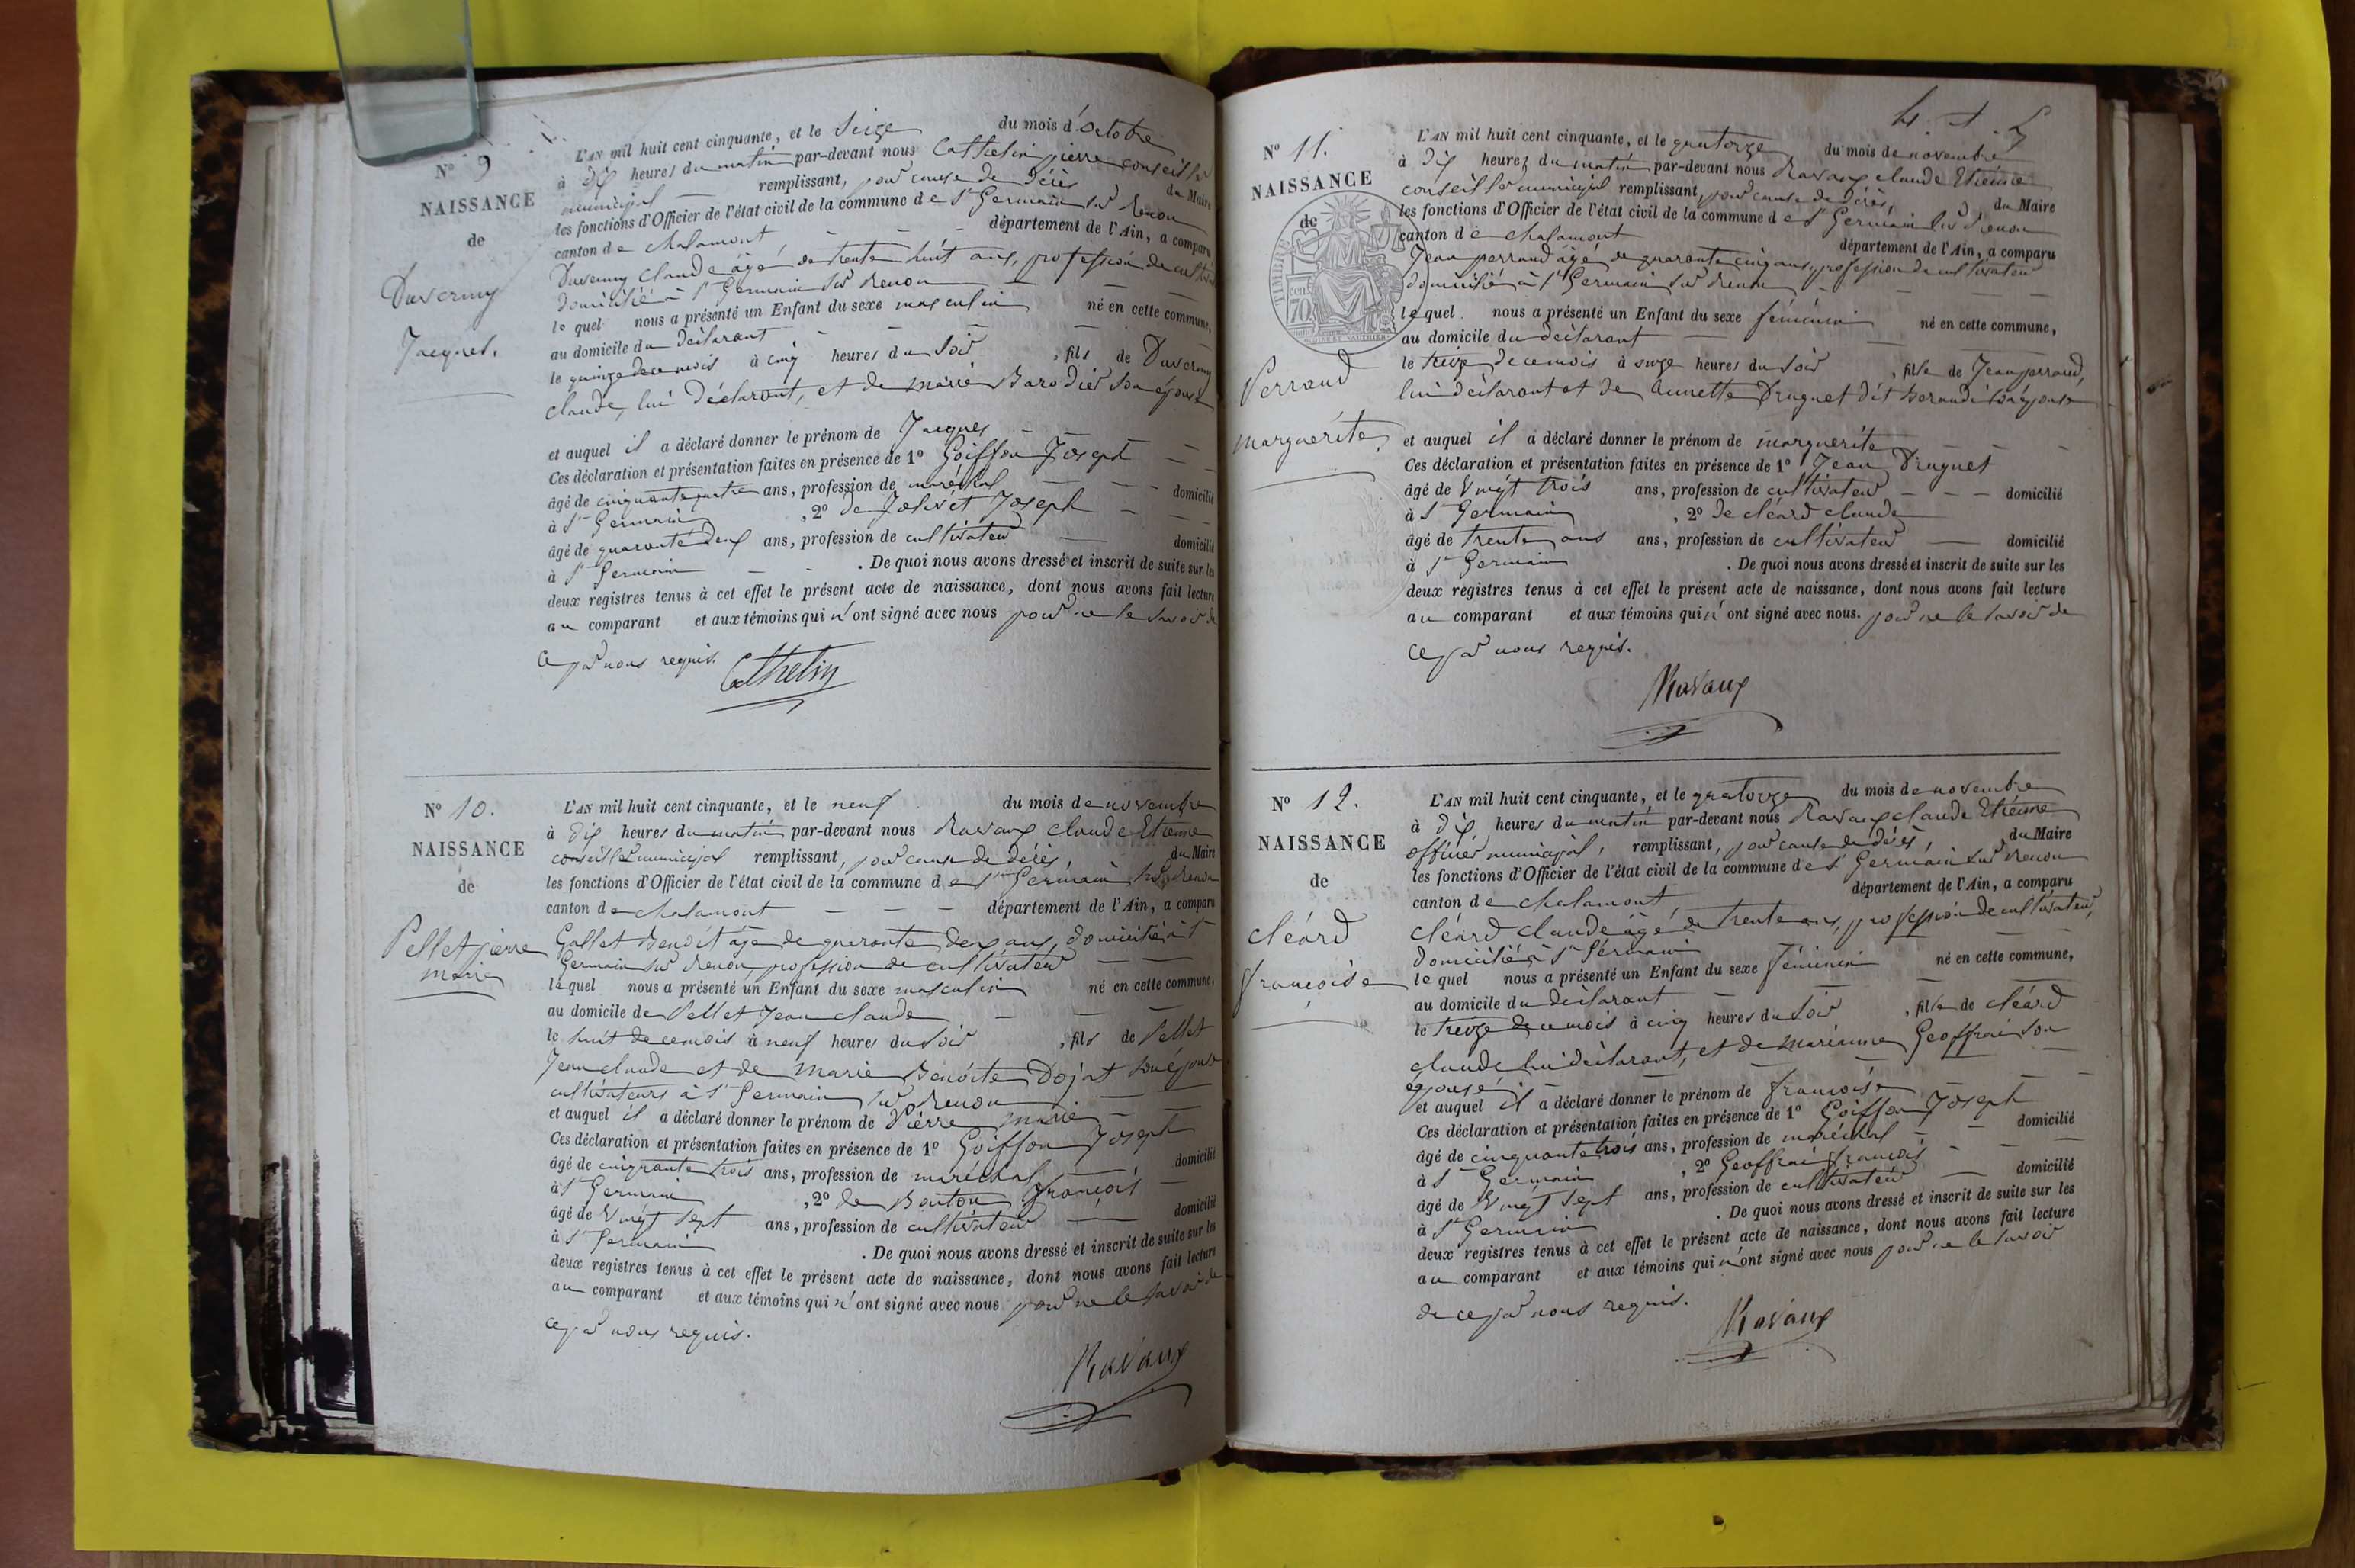 N° 9
NAISSANCE
de
Duverny
Jacques.
L'AN mil huit cent cinquante, et le Seize du mois d'octobre
à dix heures du matin par-devant nous Cathelin pierre conseiller
municipal remplissant, pour cause de décès du Maire
les fonctions d'Officier de l'état civil de la commune de St Germain sur Renon
canton de chalamont département de l'Ain, a comparu
Duverny claude âgé de trente huit ans, profession de cultivateur
domicilié à St Germain sur Renon
lequel nous a présenté un Enfant du sexe masculin né en cette commune,
au domicile du déclarant
le quinze de ce mois à cinq heures du soir, fils de Duverny
claude, lui déclarant, et de marie Barodier son épouse
et auquel il a déclaré donner le prénom de Jacques
Ces déclaration et présentation faites en présence de 1° Goiffon Joseph
âgé de cinquante quatre ans, profession de maréchal domicilié
à St Germain, 2° de Jolivet Joseph
âgé de quarante deux ans, profession de cultivateur domicilié
à St Germain. De quoi nous avons dressé et inscrit de suite sur les
deux registres tenus à cet effet le présent acte de naissance, dont nous avons fait lecture
au comparant et aux témoins qui n'ont signé avec nous pour ne le savoir de
ce par nous requis.
Cathelin
N° 10.
NAISSANCE
de
Pellet pierre
marie
L'AN mil huit cent cinquante, et le neuf du mois de novembre
à dix heures du matin par-devant nous Ravaux claude Etienne
conseiller municipal remplissant, pour cause de décès, du Maire
les fonctions d'Officier de l'état civil de la commune de St Germain sur Renon
canton de chalamont département de l'Ain, a comparu
Gallet Benoit âgé de quarante deux ans, domicilié à St
Germain sur Renon, profession de cultivateur
lequel nous a présenté un Enfant du sexe masculin né en cette commune,
au domicile de Pellet Jean claude
le huit de ce mois à neuf heures du soir, fils de Pellet
Jean claude et de marie Benoite Dojat son épouse
cultivateurs à St Germain sur Renon
et auquel il a déclaré donner le prénom de Pierre marie
Ces déclaration et présentation faites en présence de 1° Goiffon Joseph
âgé de cinquante trois ans, profession de maréchal domicilié
à St Germain, 2° de Bouton françois
âgé de Vingt sept ans, profession de cultivateur domicilié
à St Germain. De quoi nous avons dressé et inscrit de suite sur les
deux registres tenus à cet effet le présent acte de naissance, dont nous avons fait lecture
au comparant et aux témoins qui n'ont signé avec nous pour ne le savoir de
ce par nous requis.
Ravaux
N° 11.
NAISSANCE
de
TIMBRE
70
Perraud
marguerite,
L'AN mil huit cent cinquante, et le quatorze du mois de novembre
à dix heures du matin par-devant nous Ravaux claude Etienne
conseiller municipal remplissant, pour cause de décès, du Maire
les fonctions d'Officier de l'état civil de la commune de St Germain sur Renon
canton de chalamont département de l'Ain, a comparu
Jean perraud âgé de quarante cinq ans, profession de cultivateur
domicilié à St Germain sur Renon
lequel nous a présenté un Enfant du sexe féminin né en cette commune,
au domicile du déclarant
le treize de ce mois à onze heures du soir, fille de Jean perraud,
lui déclarant et de Annette Druguet dit Berandi son épouse
et auquel il a déclaré donner le prénom de marguerite
Ces déclaration et présentation faites en présence de 1° Jean Druguet
âgé de Vingt trois ans, profession de cultivateur domicilié
à St Germain, 2° de cléard claude
âgé de trente ans ans, profession de cultivateur domicilié
à St Germain. De quoi nous avons dressé et inscrit de suite sur les
deux registres tenus à cet effet le présent acte de naissance, dont nous avons fait lecture
au comparant et aux témoins qui n'ont signé avec nous. pour ne le savoir de
ce par nous requis.
Ravaux
N° 12.
NAISSANCE
de
cléard
françoise
L'AN mil huit cent cinquante, et le quatorze du mois de novembre
à dix heures du matin par-devant nous Ravaux claude Etienne
officier municipal, remplissant, pour cause de décès du Maire
les fonctions d'Officier de l'état civil de la commune de St Germain sur Renon
canton de chalamont département de l'Ain, a comparu
cléard claude âgé de trente ans, profession de cultivateur,
domicilié à St Germain
lequel nous a présenté un Enfant du sexe féminin né en cette commune,
au domicile du déclarant
le treize de ce mois à cinq heures du soir, fille de cléard
claude lui déclarant, et de marianne Geoffrai son
épouse
et auquel il a déclaré donner le prénom de françoise
Ces déclaration et présentation faites en présence de 1° Goiffon Joseph
âgé de cinquante trois ans, profession de maréchal domicilié
à St Germain, 2° Geoffrai françois
âgé de Vingt sept ans, profession de cultivateur domicilié
à St Germain. De quoi nous avons dressé et inscrit de suite sur les
deux registres tenus à cet effet le présent acte de naissance, dont nous avons fait lecture
au comparant et aux témoins qui n'ont signé avec nous pour ne le savoir
de ce par nous requis.
Ravaux